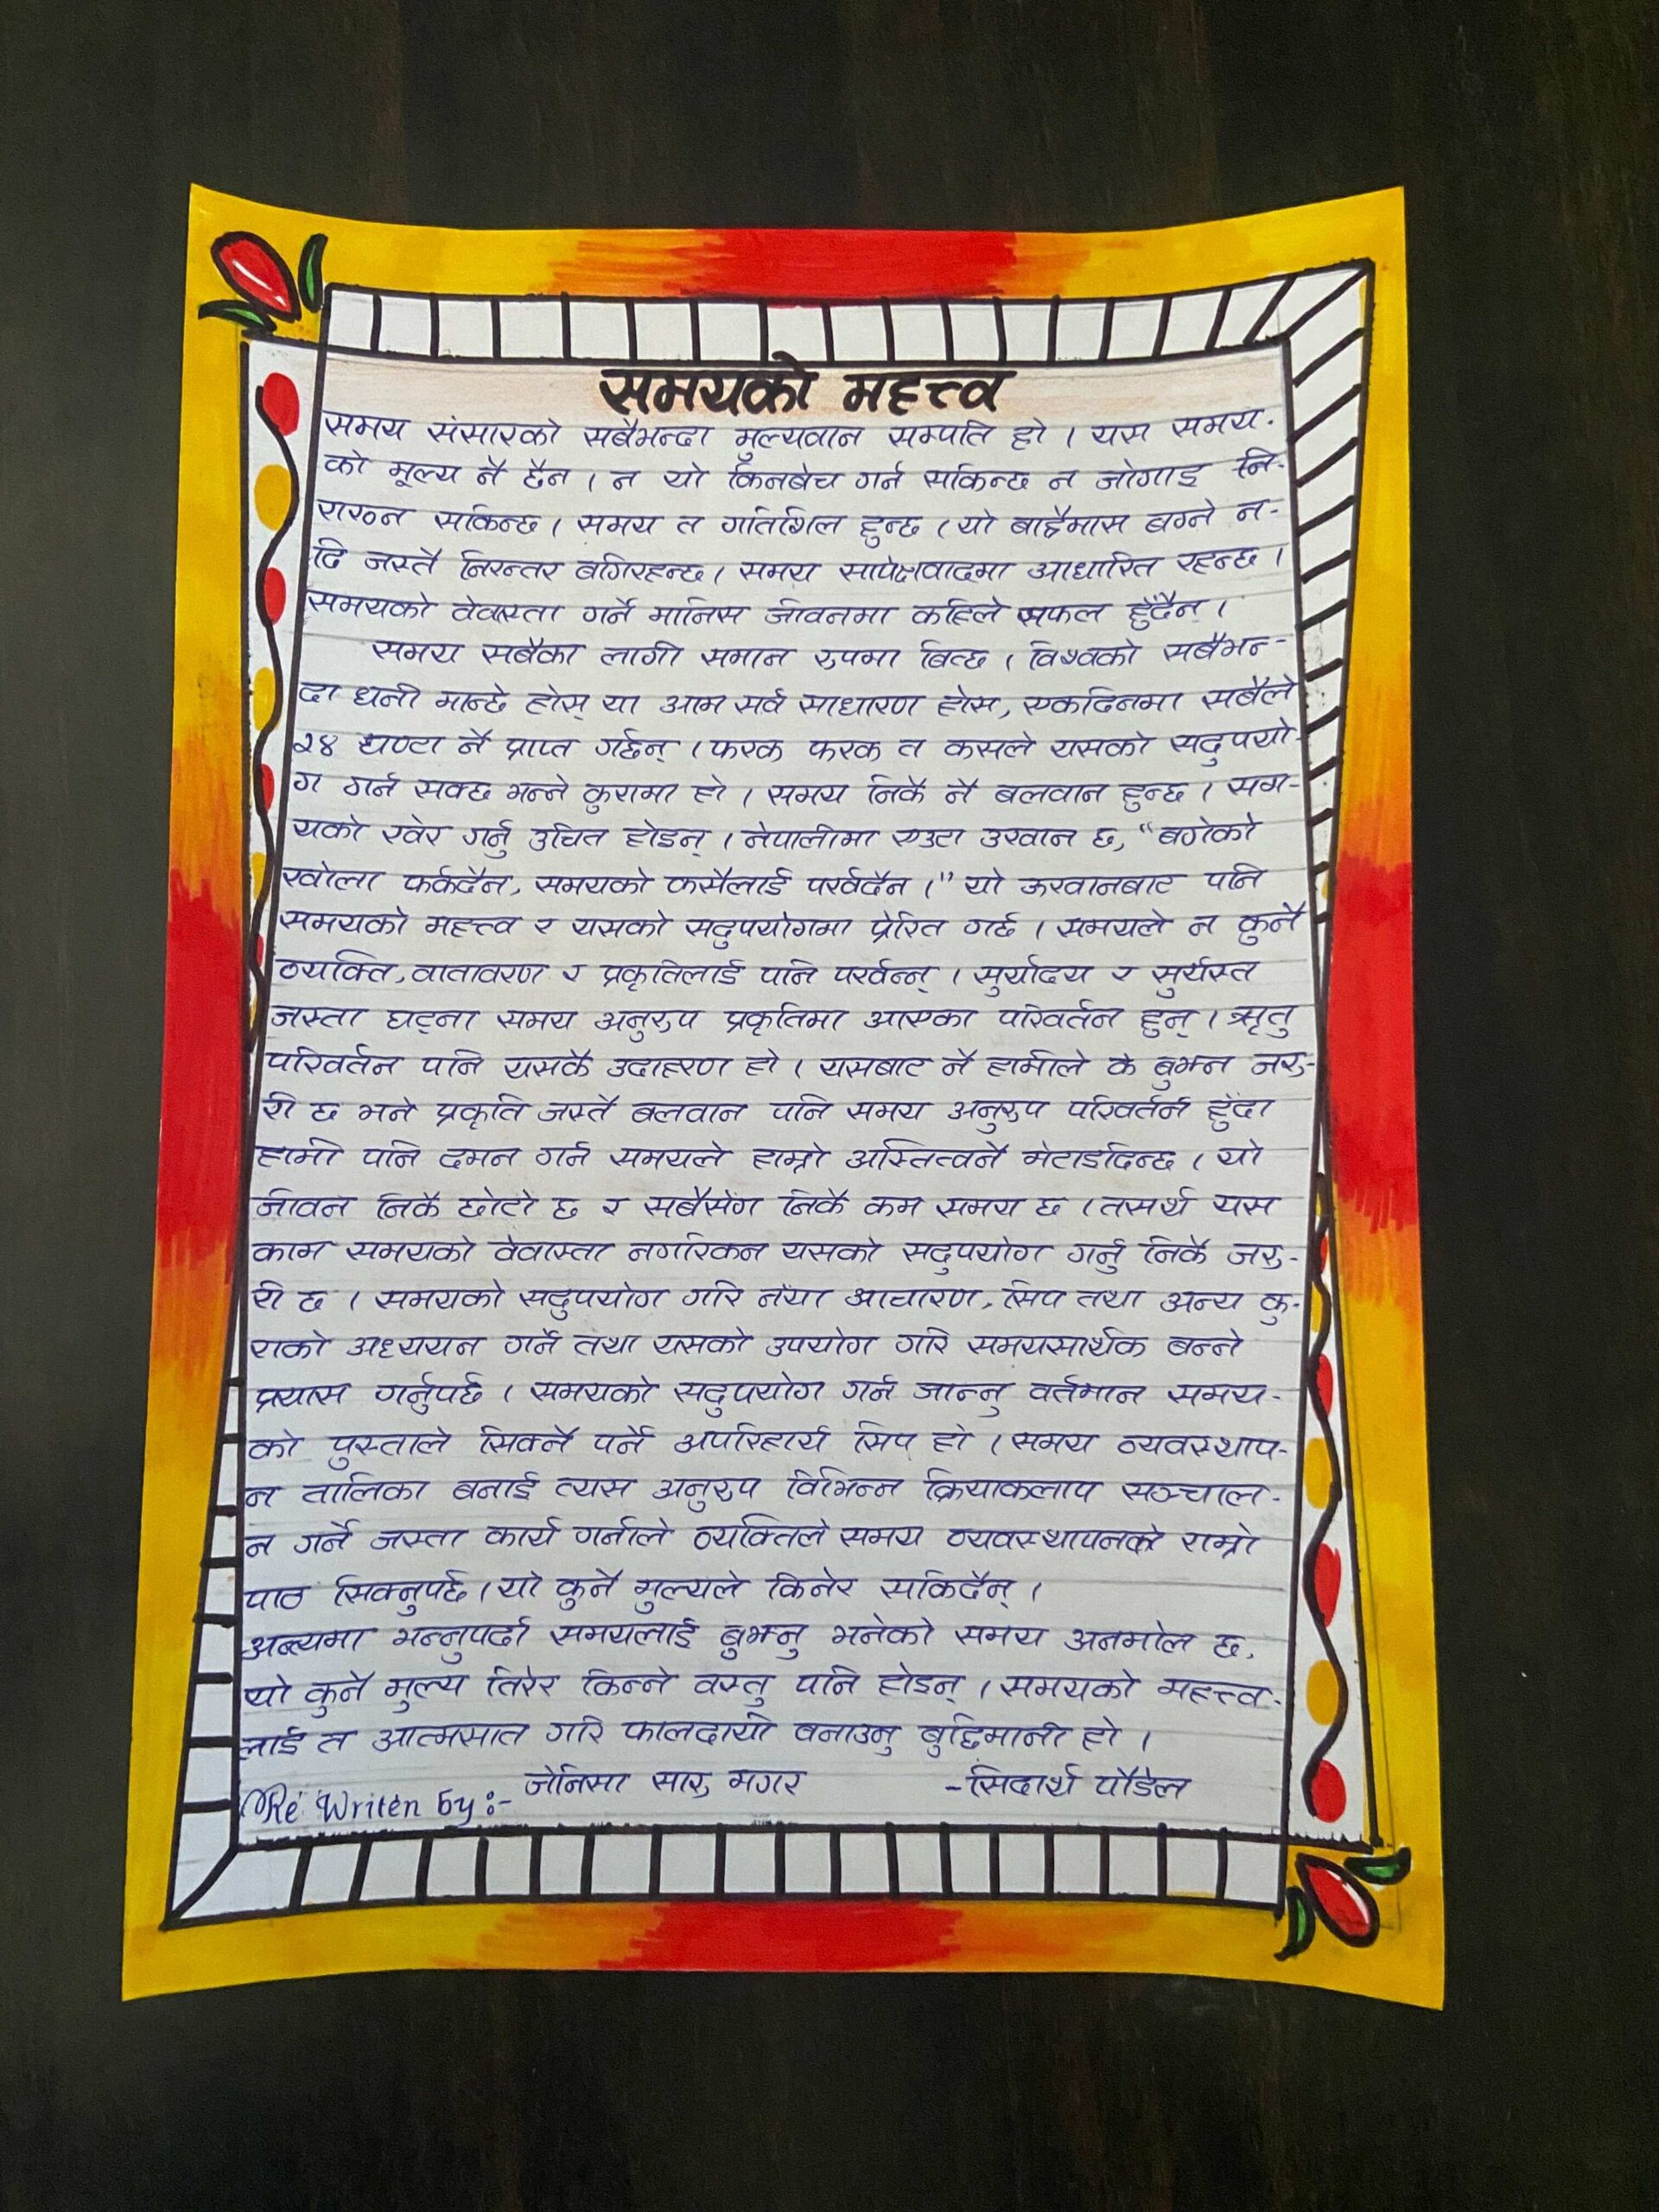 समयको महत्त्व
समय संसारको सबैभन्दा मुल्यवान सम्पति हो । यस समय-
को मूल्य नै हैन । न यो किनबेच गर्न सकिन्छ न जोगाइ नि-
राख्न सकिन्छ । समय त गतिशिल हुन्छ । यो बाह्रैमास बग्ने न-
दि जस्तै निरन्तर बगिरहन्छ । समय सापेक्षवादमा आधारित रहन्छ ।
समयको वेवास्ता गर्ने मानिस जीवनमा कहिले सफल हुँदैन् ।
समय सबैका लागी समान रुपमा बित्छ । विश्वको सबैभन-
दा धनी मान्छे होस् या आम सर्व साधारण होस, एकदिनमा सबैले
२४ घण्टा नै प्राप्त गर्छन् । फरक फरक त कसले यसको सदुपयो-
ग गर्न सक्छ भन्ने कुरामा हो । समय निकै नै बलवान हुन्छ । सम-
यको खेर गर्नु उचित होइन् । नेपालीमा एउटा उखान छ, "बगेको
खोला फर्कदैन, समयको कसैलाई पर्खदैन ।" यो ऊखानबाट पनि
समयको महत्त्व र यसको सदुपयोगमा प्रेरित गर्छ । समयले न कुनै
व्यक्ति, वातावरण र प्रकृतिलाई पनि पर्खन्न् । सुर्योदय र सुर्यस्त
जस्ता घट्ना समय अनुरुप प्रकृतिमा आएका परिवर्तन हुन् । ऋतु
परिवर्तन पनि यसकै उदाहरण हो । यसबाट नै हामीले के बुझ्न जरु-
री छ भने प्रकृति जस्तै बलवान पनि समय अनुरुप परिवर्तन हुँदा
हामी पनि दमन गर्न समयले हाम्रो अस्तित्वनै मेटाईदिन्छ । यो
जीवन निकै छोटो छ र सबैसँग निकै कम समय छ । तसर्थ यस
काम समयको वेवास्ता नगरिकन यसको सदुपयोग गर्नु निकै जरु-
री छ । समयको सदुपयोग गरि नँया आचारण, सिप तथा अन्य कु-
राको अध्ययन गर्ने तथा यसको उपयोग गरि समयसार्थक बन्ने
प्रयास गर्नुपर्छ । समयको सदुपयोग गर्न जान्नु वर्तमान समय-
को पुस्ताले सिक्नै पर्ने अपरिहार्य सिप हो । समय व्यवस्थाप-
न तालिका बनाई त्यस अनुरुप विभिन्न क्रियाकलाप सञ्चाल-
न गर्ने जस्ता कार्य गर्नाले व्यक्तिले समय व्यवस्थापनको राम्रो
पाठ सिक्नुपर्छ । यो कुनै मुल्यले किनेर सकिदैन् ।
अन्त्यमा भन्नुपर्दा समयलाई बुझ्नु भनेको समय अनमोल छ,
यो कुनै मुल्य तिरेर किन्ने वस्तु पनि होइन् । समयको महत्त्व-
लाई त आत्मसात गरि फालदायी बनाउनु बुद्दिमानी हो ।
Re Writen by :- जेनिसा सारु मगर -सिदार्थ पौडेल